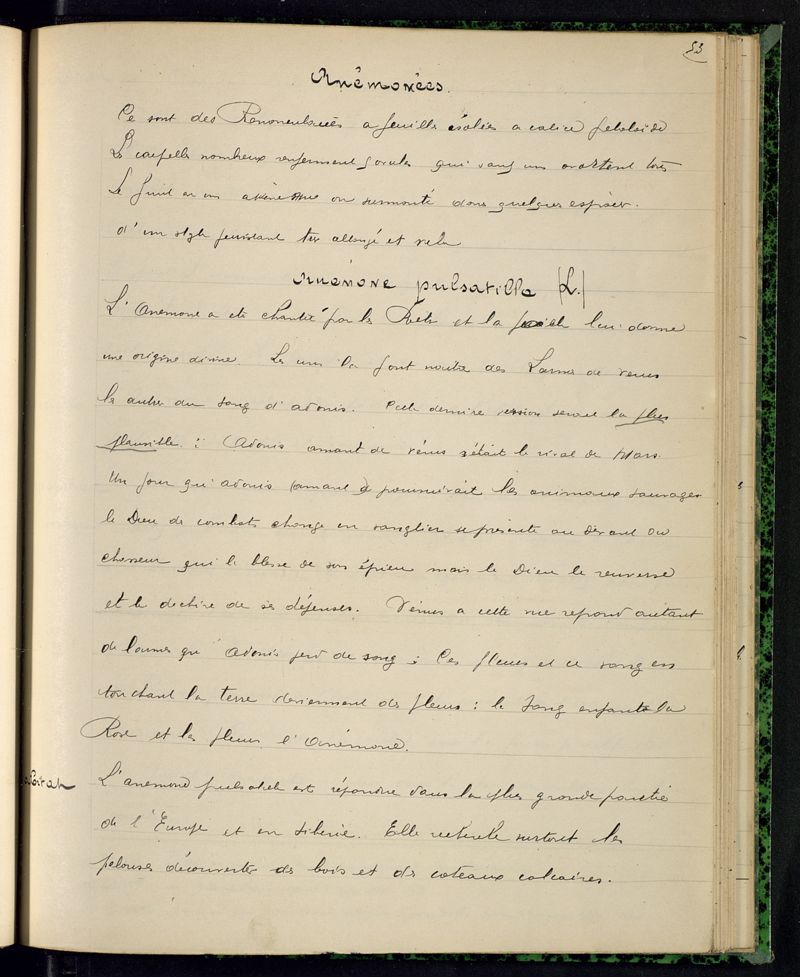 53
Anémonées.
Ce sont des Renonculacées a feuilles isolées a calice petaloide
Les carpelles nombreux renferment 5 ovules qui sauf un avortent tous
Le fruit en un akène nue ou surmonté dans quelques espèces
d'un style persistant très allongé et velu
Anémone pulsatille (L.)
L'Anemone a ete chantée par les Poetes et la leur donne
une origine divine. Les uns la font naître des Larmes de venus
les autres du sang d'adonis. Cette derniere version serait la plus
plausible : Adonis amant de vénus était le rival de Mars.
Un jour qu'adonis (amant) poursuivait les animaux sauvages
le Dieu des combats changé en sanglier se présente au devant du
chasseur qui le blesse de son épieu mais le Dieu le renverse
et le dechire de ses défenses. Vénus a cette vue repand autant
de larmes qu'Adonis perd de sang ; Ces pleurs et ce sang en
touchant la terre deviennent des fleurs : le sang enfante la
Rose et les pleurs l'anémone.
L'anemone pulsatile est répandue dans la plus grande partie
de l'Europe et en Siberie. Elle surtout les
pelouses découvertes des bois et des coteaux calcaires.